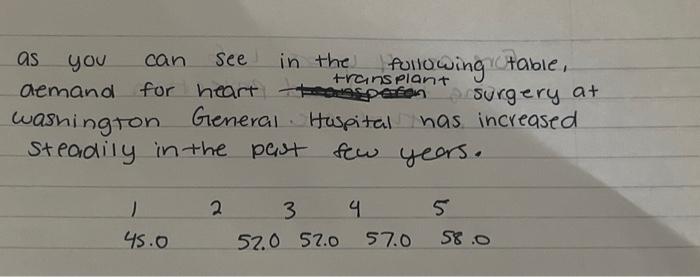 as you can see in the following table,
demand for heart transplant surgery at
washington General Hospital has increased
steadily in the past few years.
1 2 3 4 5
45.0 52.0 52.0 57.0 58.0